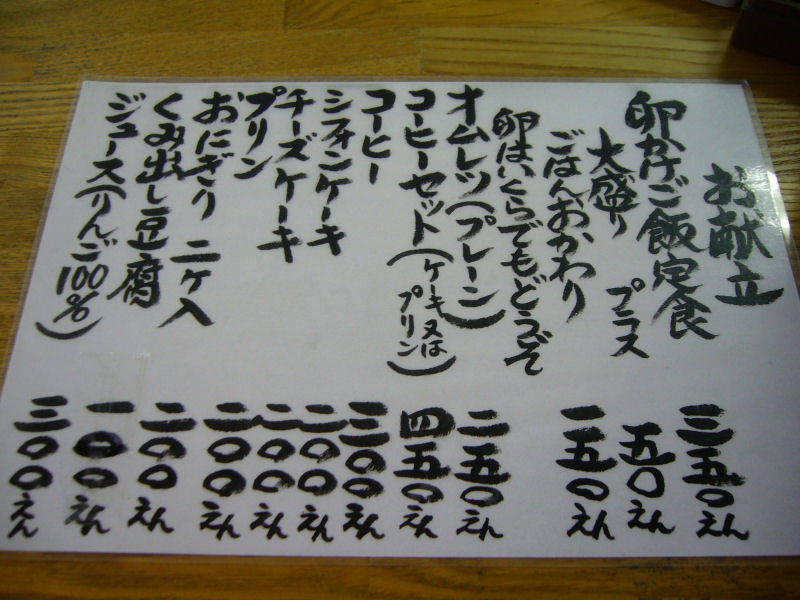 お献立
卵かけご飯定食 三五〇えん
大盛り プラス 五〇えん
ごはんおかわり 一五〇えん
卵はいくらでもどうぞ
オムレツ(プレーン) 二五〇えん
コーヒーセット(ケーキ又はプリン) 四五〇えん
コーヒー 三〇〇えん
シフォンケーキ 二〇〇えん
チーズケーキ 二〇〇えん
プリン 二〇〇えん
おにぎり 二ケ入 二〇〇えん
くみ出し豆腐 一〇〇えん
ジュース(りんご100%) 三〇〇えん